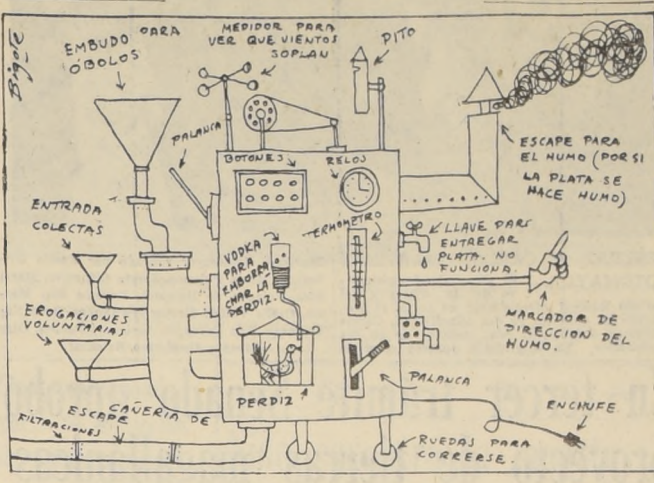 Bigote
EMBUDO PARA
ÓBOLOS
MEDIDOR PARA
VER QUE VIENTOS
SOPLAN
PITO
PALANCA
BOTONES
RELOS
ESCAPE PARA
EL HUMO (POR SI
LA PLATA SE
HACE HUMO)
ENTRADA
COLECTAS
TERMOMETRO
LLAVE PARA
ENTREGAR
PLATA. NO
FUNCIONA.
VODKA
PARA
EMBORRA
CHAR LA
PERDIZ.
EROGACIONES
VOLUNTARIAS
MARCADOR DE
DIRECCION DEL
HUMO.
PALANCA
PERDIZ
CAÑERIA DE
ESCAPE
FILTRACIONES
ENCHUFE
RUEDAS PARA
CORRERSE.